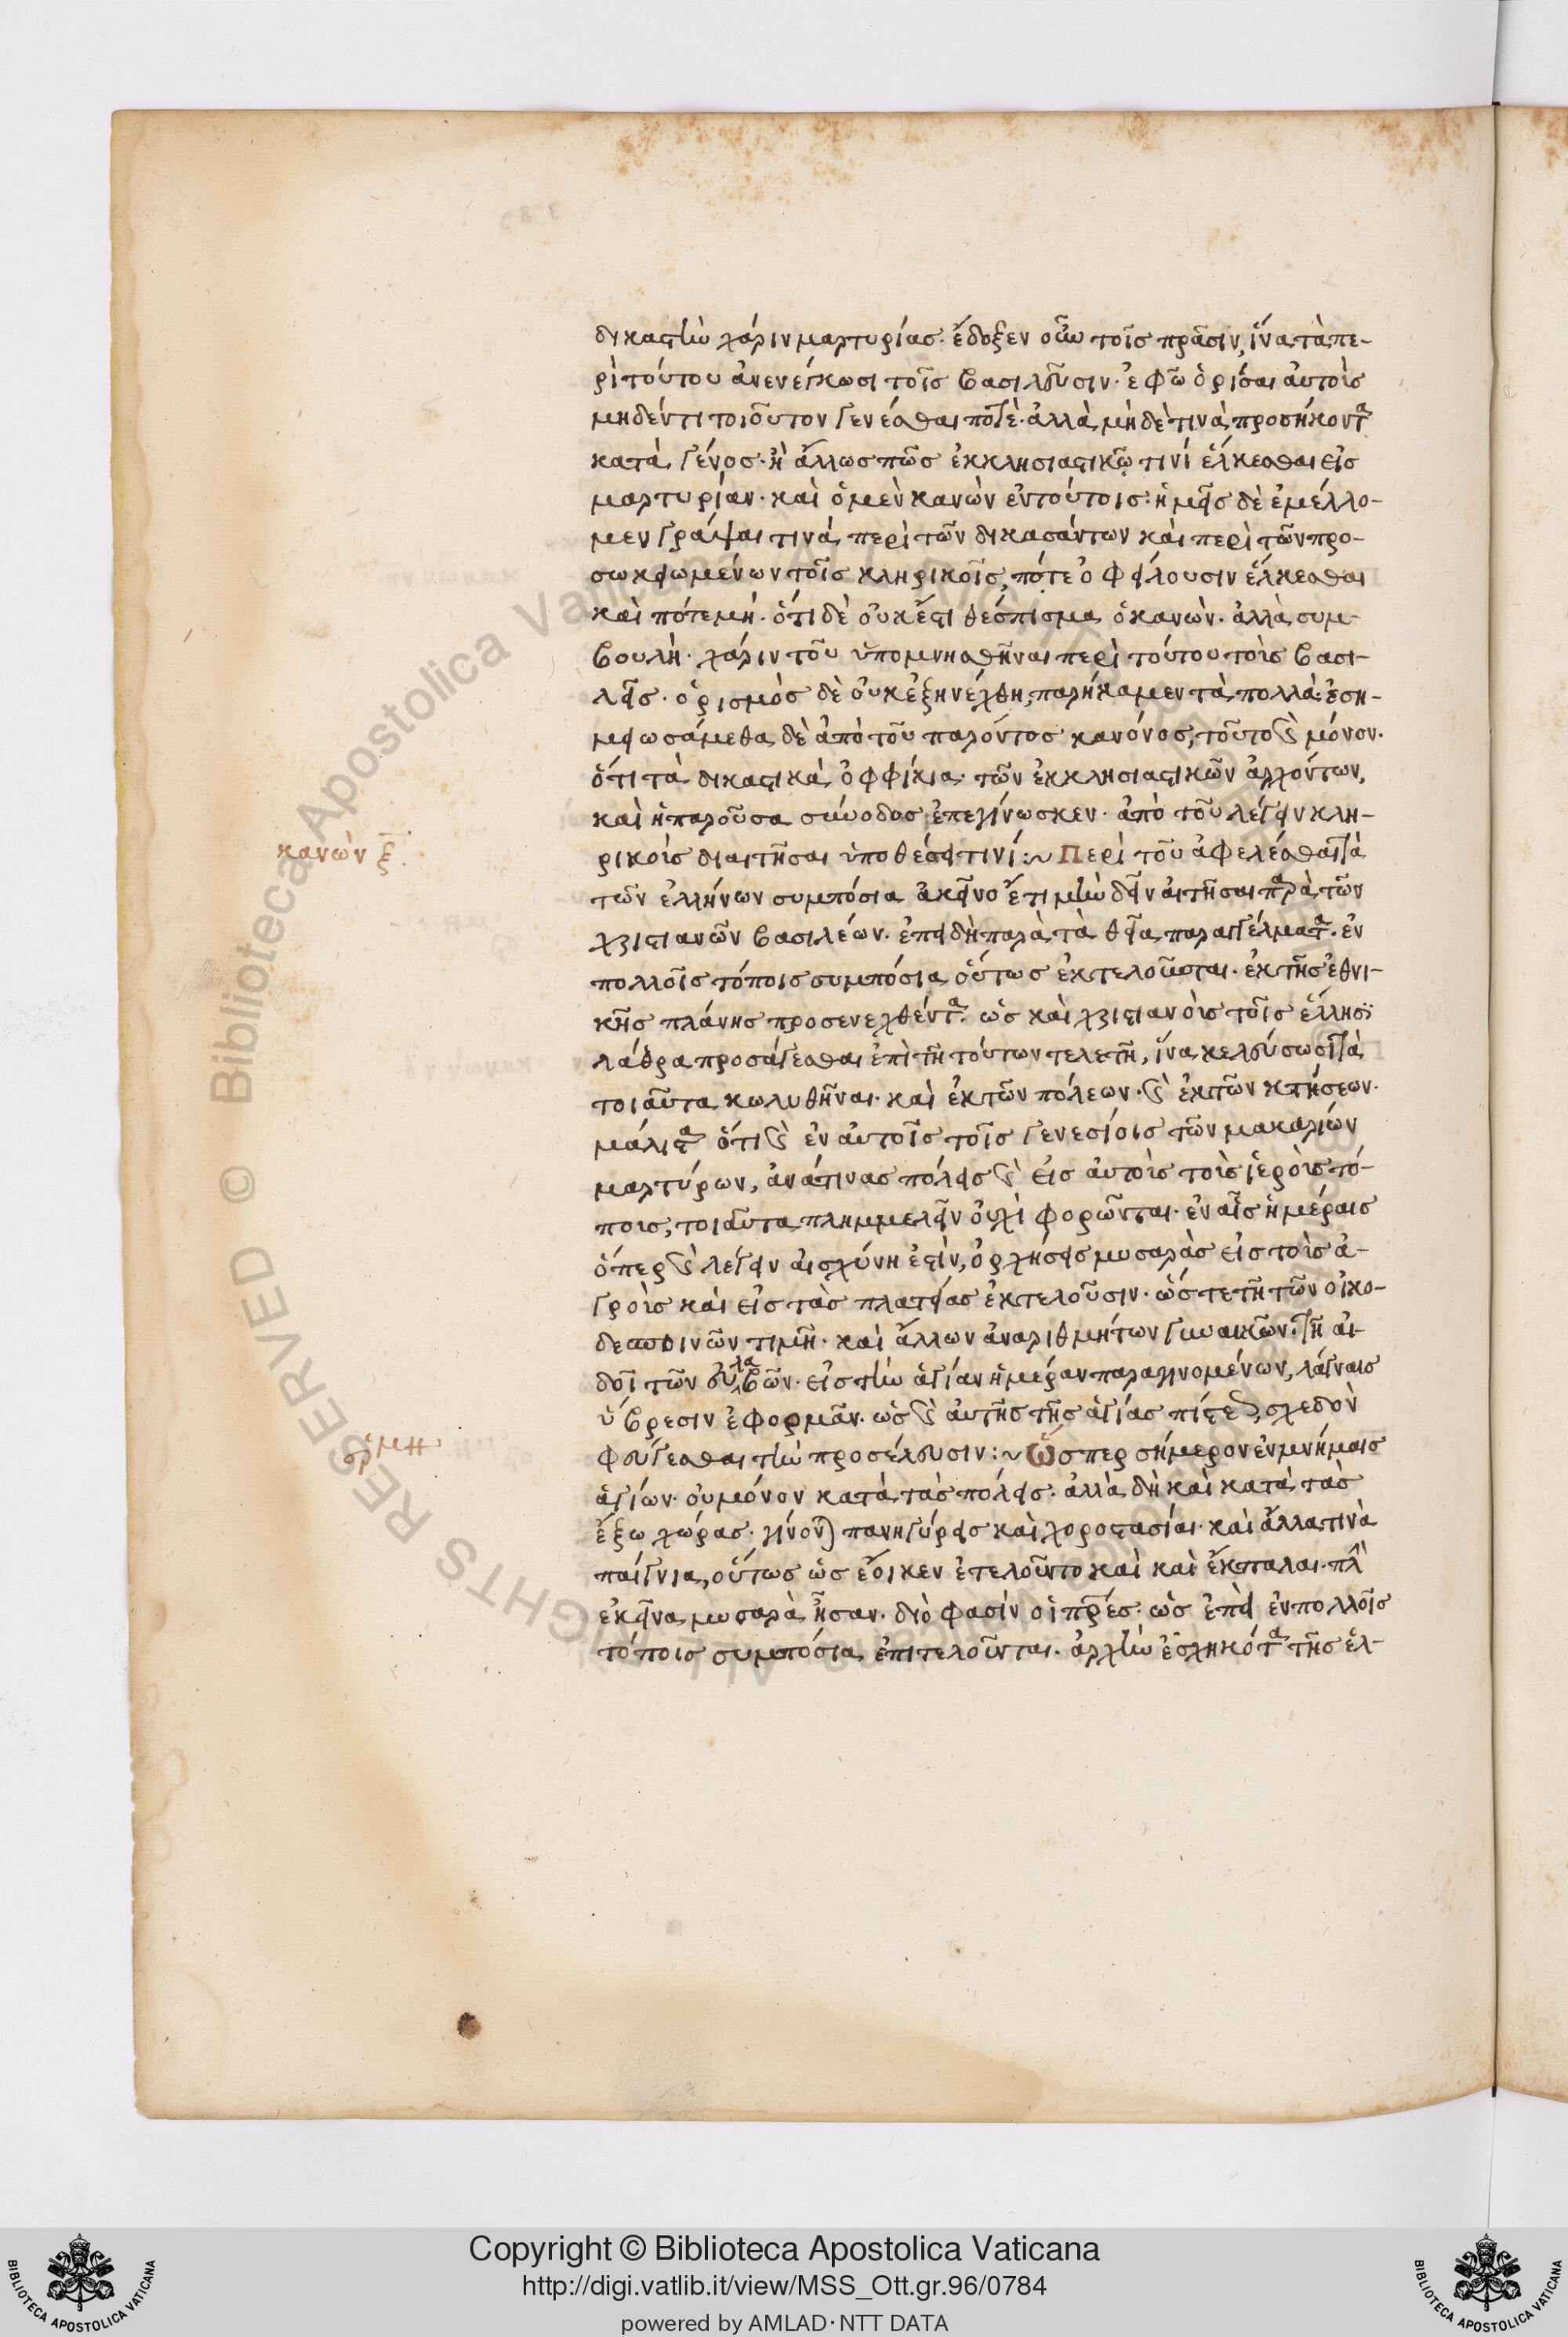 δικαστὴν χάριν μαρτυρίας· ἔδοξεν οὖν τοῖς πρᾶσιν, ἵνα τὰ πε-
ρὶ τούτου ἀνενέγκωσι τοῖς βασιλεῦσιν· ἐφῶ ὁρίσαι αὐτοὺς
μηδέν τι τοιοῦτον γενέσθαι ποτὲ· ἀλλὰ μὴ δὲ τινὰ προσήκοντα
κατὰ γένος· ἢ ἄλλως πῶς ἐκκλησιαστικῶ τινί ἕλκεσθαι εἰς
μαρτυρίαν· καὶ ὁ μὲν κανὼν ἐν τούτοις· ἡμεῖς δὲ ἐμέλλο-
μεν γράψαι τινὰ περὶ τῶν δικασάντων καὶ περὶ τῶν προ-
σωκειωμένων τοῖς κληρικοῖς, πότε ὀφείλουσιν ἕλκεσθαι
καὶ πότε μή· ὅτι δὲ οὐκ ἔστι θέσπισμα ὁ κανὼν· ἀλλὰ συμ-
βουλὴ· χάριν τοῦ ὑπομνησθῆναι περὶ τούτου τοὺς βασι-
λεῖς· ὁρισμὸς δὲ οὐκ ἐξηνέχθη, παρήκαμεν τὰ πολλὰ· ἐση-
μειωσάμεθα δὲ ἀπὸ τοῦ παρόντος κανόνος, τοῦτο καὶ μόνον·
ὅτι τὰ δικαστικὰ ὀφφίκια τῶν ἐκκλησιαστικῶν ἀρχόντων,
καὶ ἡ παροῦσα σύνοδος ἐπεγίνωσκεν· ἀπὸ τοῦ λέγειν κλη-
κανών ξ.
ρικοὺς διαιτῆσαι ὑποθέσει τινί:~ Περὶ τοῦ ἀφελέσθαι τὰ
τῶν ἑλλήνων συμπόσια ἀκεῖνο ἔτι μὴν δεῖν αἰτῆσαι παρὰ τῶν
χριστιανῶν βασιλέων· ἐπειδὴ παρὰ τὰ θεῖα παραγγέλματα· ἐν
πολλοῖς τόποις συμπόσια οὕτως ἐκτελοῦνται· ἐκ τῆς ἐθνι-
κῆς πλάνης προσενεχθέντα· ὡς καὶ χριστιανοὺς τοῖς ἕλλησϊ
λάθρα προσάγεσθαι ἐπὶ τῆ τούτων τελετῆ, ἵνα κελεύσωσι τὰ
τοιαῦτα κωλυθῆναι· καὶ ἐκ τῶν πόλεων· καὶ ἐκ τῶν κτήσεων·
μάλιστα ὅτι καὶ ἐν αὐτοῖς τοῖς γενεσίοις τῶν μακαρίων
μαρτύρων, ἀνά τινας πόλεις καὶ εἰς αὐτοὺς τοὺς ἱεροὺς τό-
πους, τοιαῦτα πλημμελεῖν οὐχὶ φορῶνται· ἐν αἷς ἡμέραις
ὅπερ καὶ λέγειν αἰσχύνη ἐστὶν, ὀρχήσεις μυσαρὰς εἰς τοὺς ἀ-
γροὺς καὶ εἰς τὰς πλατείας ἐκτελοῦσιν· ὥστε τῆ τῶν οἰκο-
δεσποινῶν τιμῆ· καὶ ἄλλων ἀναριθμήτων γυναικῶν· τῆ αἰ-
δοῖ τῶν εὐλαβῶν· εἰς τὴν ἁγίαν ἡμέραν παραγινομένων, λάγναις
ὕβρεσιν ἐφορμᾶν· ὡς καὶ αὐτῆς τῆς ἁγίας πίστεως, σχεδὸν
ἑρμη
φεύγεσθαι τὴν προσέλευσιν:~ Ὥσπερ σήμερον ἐν μνήμαις
ἁγίων· οὐ μόνον κατὰ τὰς πόλεις· ἀλλὰ δὴ καὶ κατὰ τὰς
ἔξω χώρας· γίνονται πανηγύρεις καὶ χοροστασίαι· καὶ ἄλλα τινὰ
παίγνια, οὕτως ὡς ἔοικεν ἐτελοῦντο καὶ καὶ ἔκπαλαι· πλὴν
ἐκεῖνα μυσαρὰ ἦσαν· διό φασίν οἱ πρέσ· ὡς ἐπεὶ ἐν πολλοῖς
τόποις συμπόσια ἐπιτελοῦνται· ἀρχὴν ἐσχηκότα τῆς ἑλ-
Copyright © Biblioteca Apostolica Vaticana
http://digi.vatlib.it/view/MSS_Ott.gr.96/0784
powered by AMLAD·NTT DATA